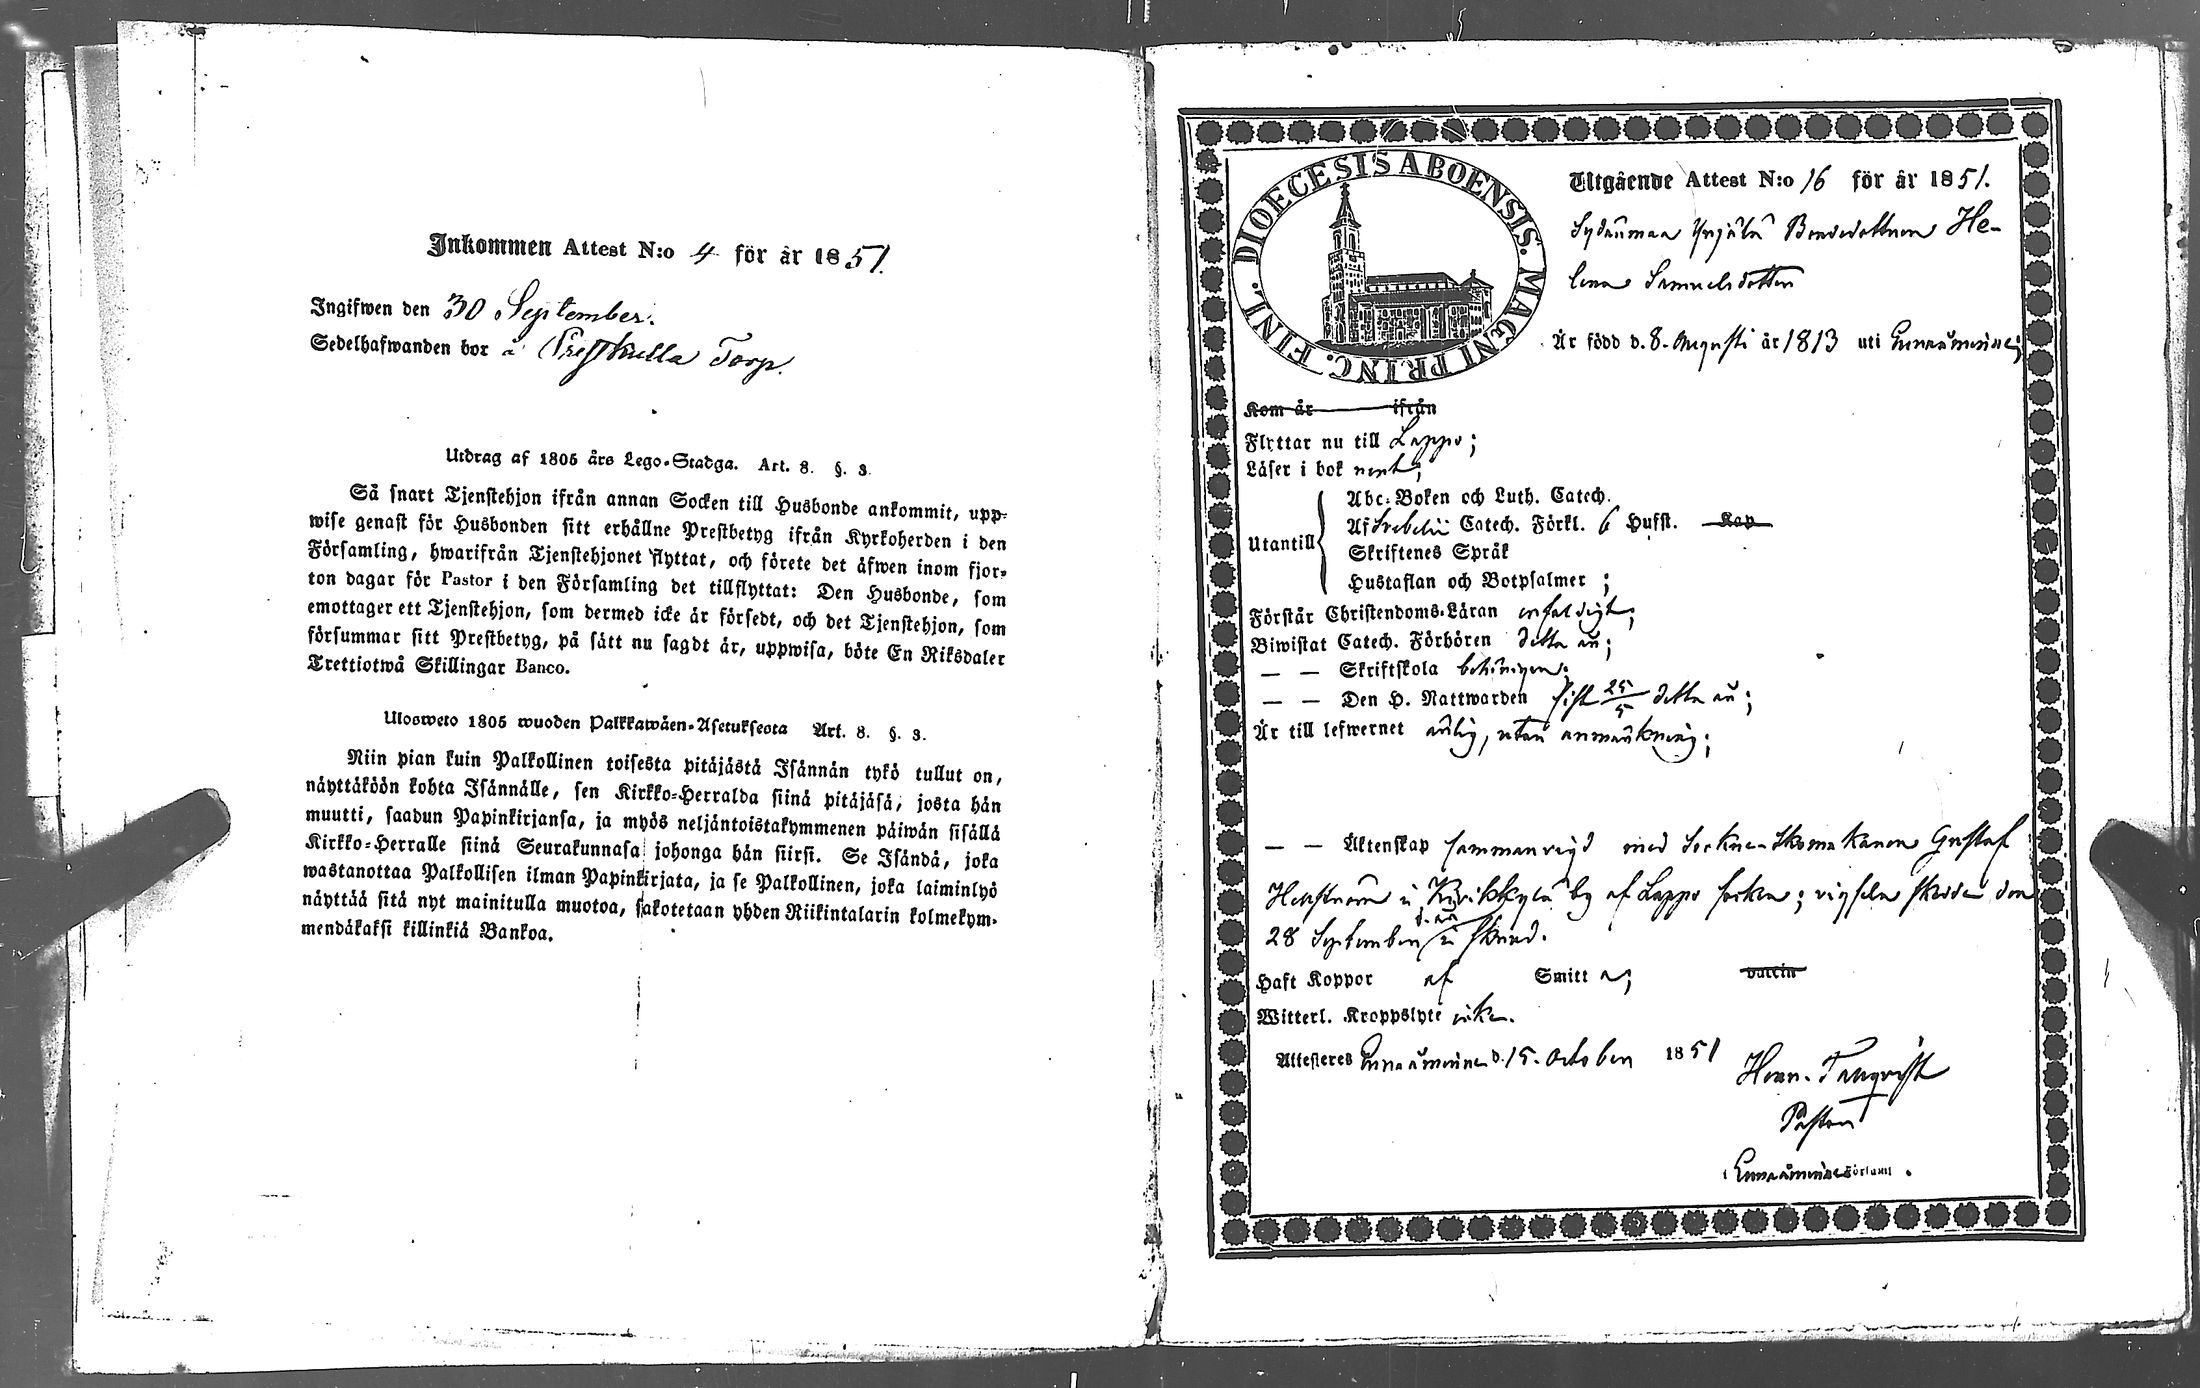 Inkommen Attest N:o 4 för år 1851.
Ingifwen den 30 September.
Sedelhafwanden bor å Prestkulla Torp.
Utdrag af 1805 års Lego-Stadga. Art. 8. §. 3.
Så snart Tjenstehjon ifrån annan Socken till Husbonde ankommit, upp-
wise genast för Husbonden sitt erhållne Prestbetyg ifrån Kyrkoherden i den
Församling, hwarifrån Tjenstehjonet flyttat, och förete det äfwen inom fjor-
ton dagar för Pastor i den Församling det tillflyttat: Den Husbonde, som
emottager ett Tjenstehjon, som dermed icke är försedt, och det Tjenstehjon, som
försummar sitt Prestbetyg, på sätt nu sagdt är, uppwisa, böte En Riksdaler
Trettiotwå Skillingar Banco.
Ulosweto 1805 wuoden Palkkawäen-Asetuksesta Art. 8. §. 3.
Niin pian kuin Palkollinen toisesta pitäjästä Isännän tykö tullut on,
näyttäköön kohta Isännälle, sen Kirkko-Herralda siinä pitäjäsä, josta hän
muutti, saadun Papinkirjansa, ja myös neljäntoistakymmenen päiwän sisällä
Kirkko-Herralle siinä Seurakunnasa johonga hän siirsi. Se Isändä, joka
wastanottaa Palkollisen ilman Papinkirjata, ja se Palkollinen, joka laiminlyö
näyttää sitä nyt mainitulla muotoa, sakotetaan yhden Riikintalarin kolmekym-
mendäkaksi killinkiä Bankoa.
DIOECESIS ABOENSIS. MAGNI PRINC. FINL.
Utgående Attest N:o 16 för år 1851.
He-
lena Samuelsdotter
Är född d. 8. Augusti år 1813 uti Ennäminne;
Kom år ifrån
Flyttar nu till Lappo;
Läser i bok nent;
Abc-Boken och Luth. Catech.
Af Svebelii Catech. Förkl. 6 Hufst. Kap
Utantill
Skriftenes Språk
Hustaflan och Botpsalmer ;
Förstår Christendoms-Läran enfaldigt;
Biwistat Catech. Förhören detta år;
— — Skriftskola behörigen;
— — Den H. Nattwarden sist 25/5 detta år;
Är till lefwernet ärlig, utan anmärkning;
— — Äktenskap sammanvigd med Socknе-Skomakaren Gustaf
i by af Lappo socken; vigseln skedde den
28 September d. år i
Haft Koppor af Smitta; vaccin
Witterl. Kroppslyte icke.
Attesteres d. 15. October 1851
Henr.
Pastor
Församl.